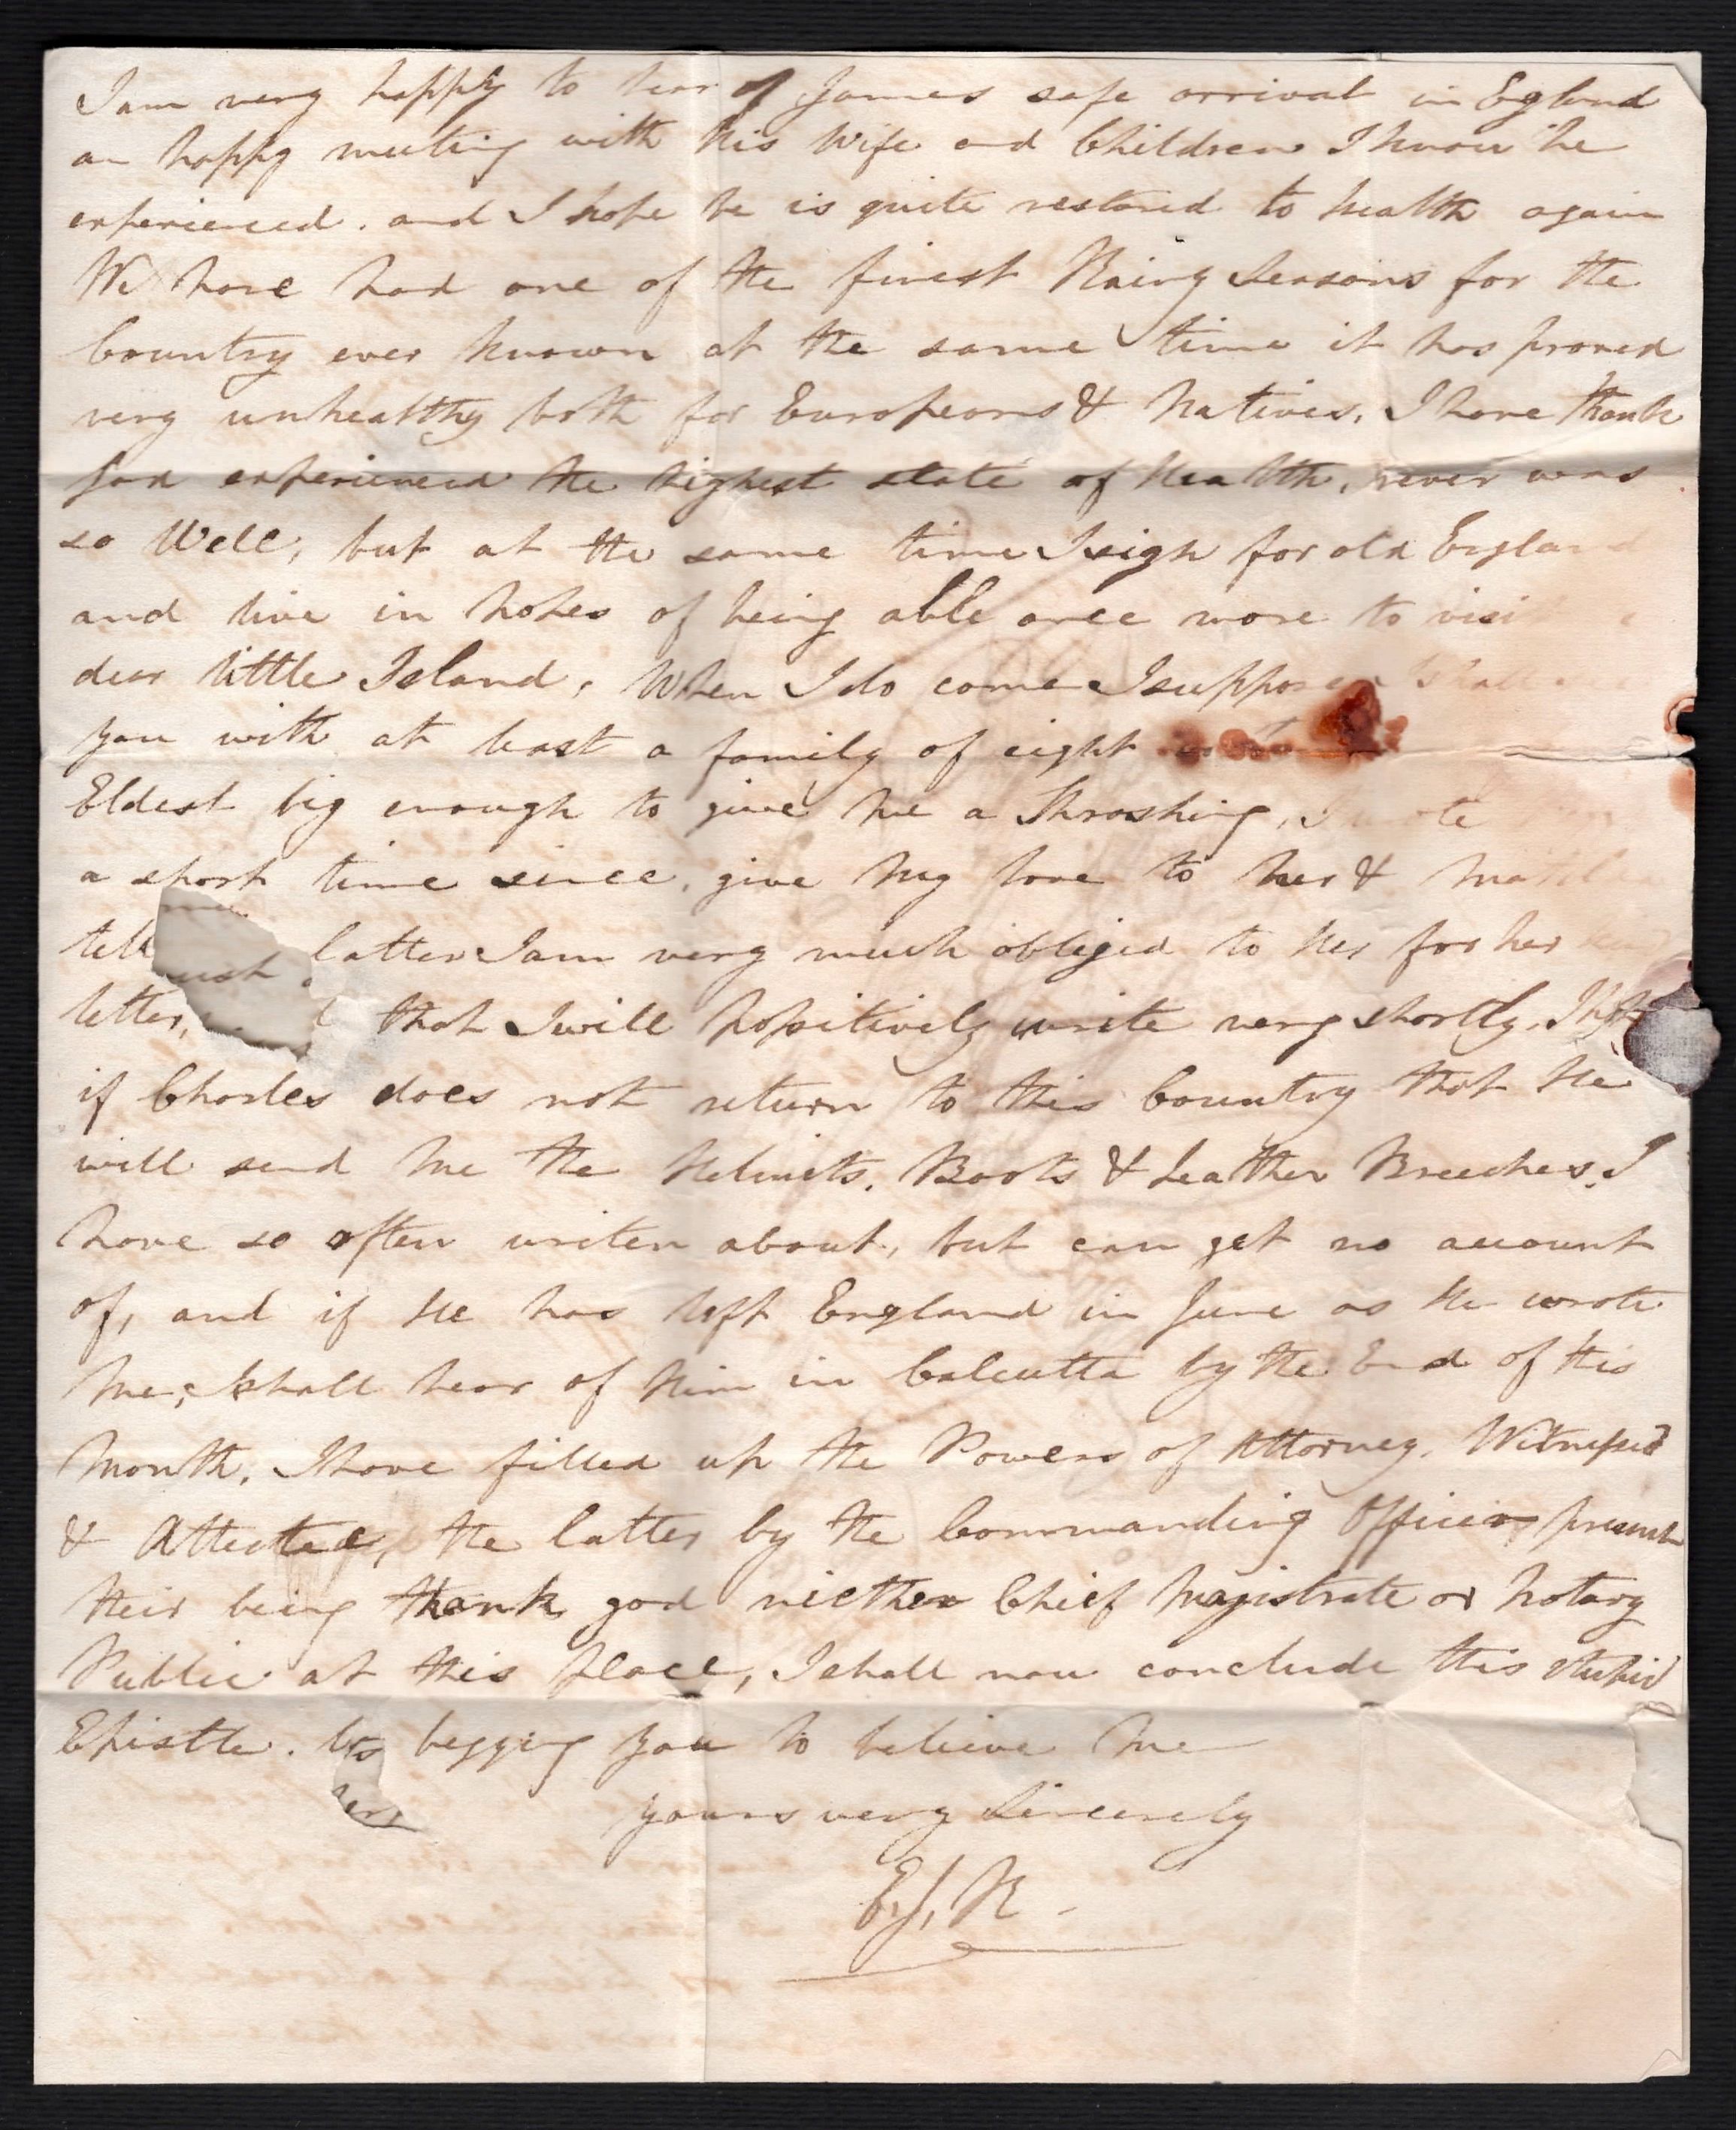 I am very happy to hear of James safe arrival in Eglend
an happy meeting with his Wife and Children I know he
experienced. and I hope he is quite restored to health again
We have had one of the finest Rainy Seasons for the
Country ever known at the same time it has proved
very unhealthy both for Europeans & Natives. I have thank
god experienced the highest state of Health, never was
so Well, but at the same time I sigh for old England
and live in hopes of being able once more to visi
dear little Island, When I do come I suppose I shall
you with at least a family of eight
Eldest big enough to give me a Thrashing, I wrote
a short time since, give my love to her &
tell latter I am very much obliged to her for her
letter, that I will positively write very shortly. I hope
if Charles does not return to this Country that He
will send me the Helmets, Boots & Leather Breeches I
have so often writen about, but can get no account
of, and if He has left England in June as He wrote
me, I shall hear of him in Calcutta by the End of this
Month, I have filled up the Powers of Attorney. Witnessed
& Attested, the latter by the Commanding Officer present
their being thank god niether Chief Magistrate or Notary
Public at this place, I shall now conclude this stupid
Epistle. begging you to believe me
yours very sincerely
E.J.R